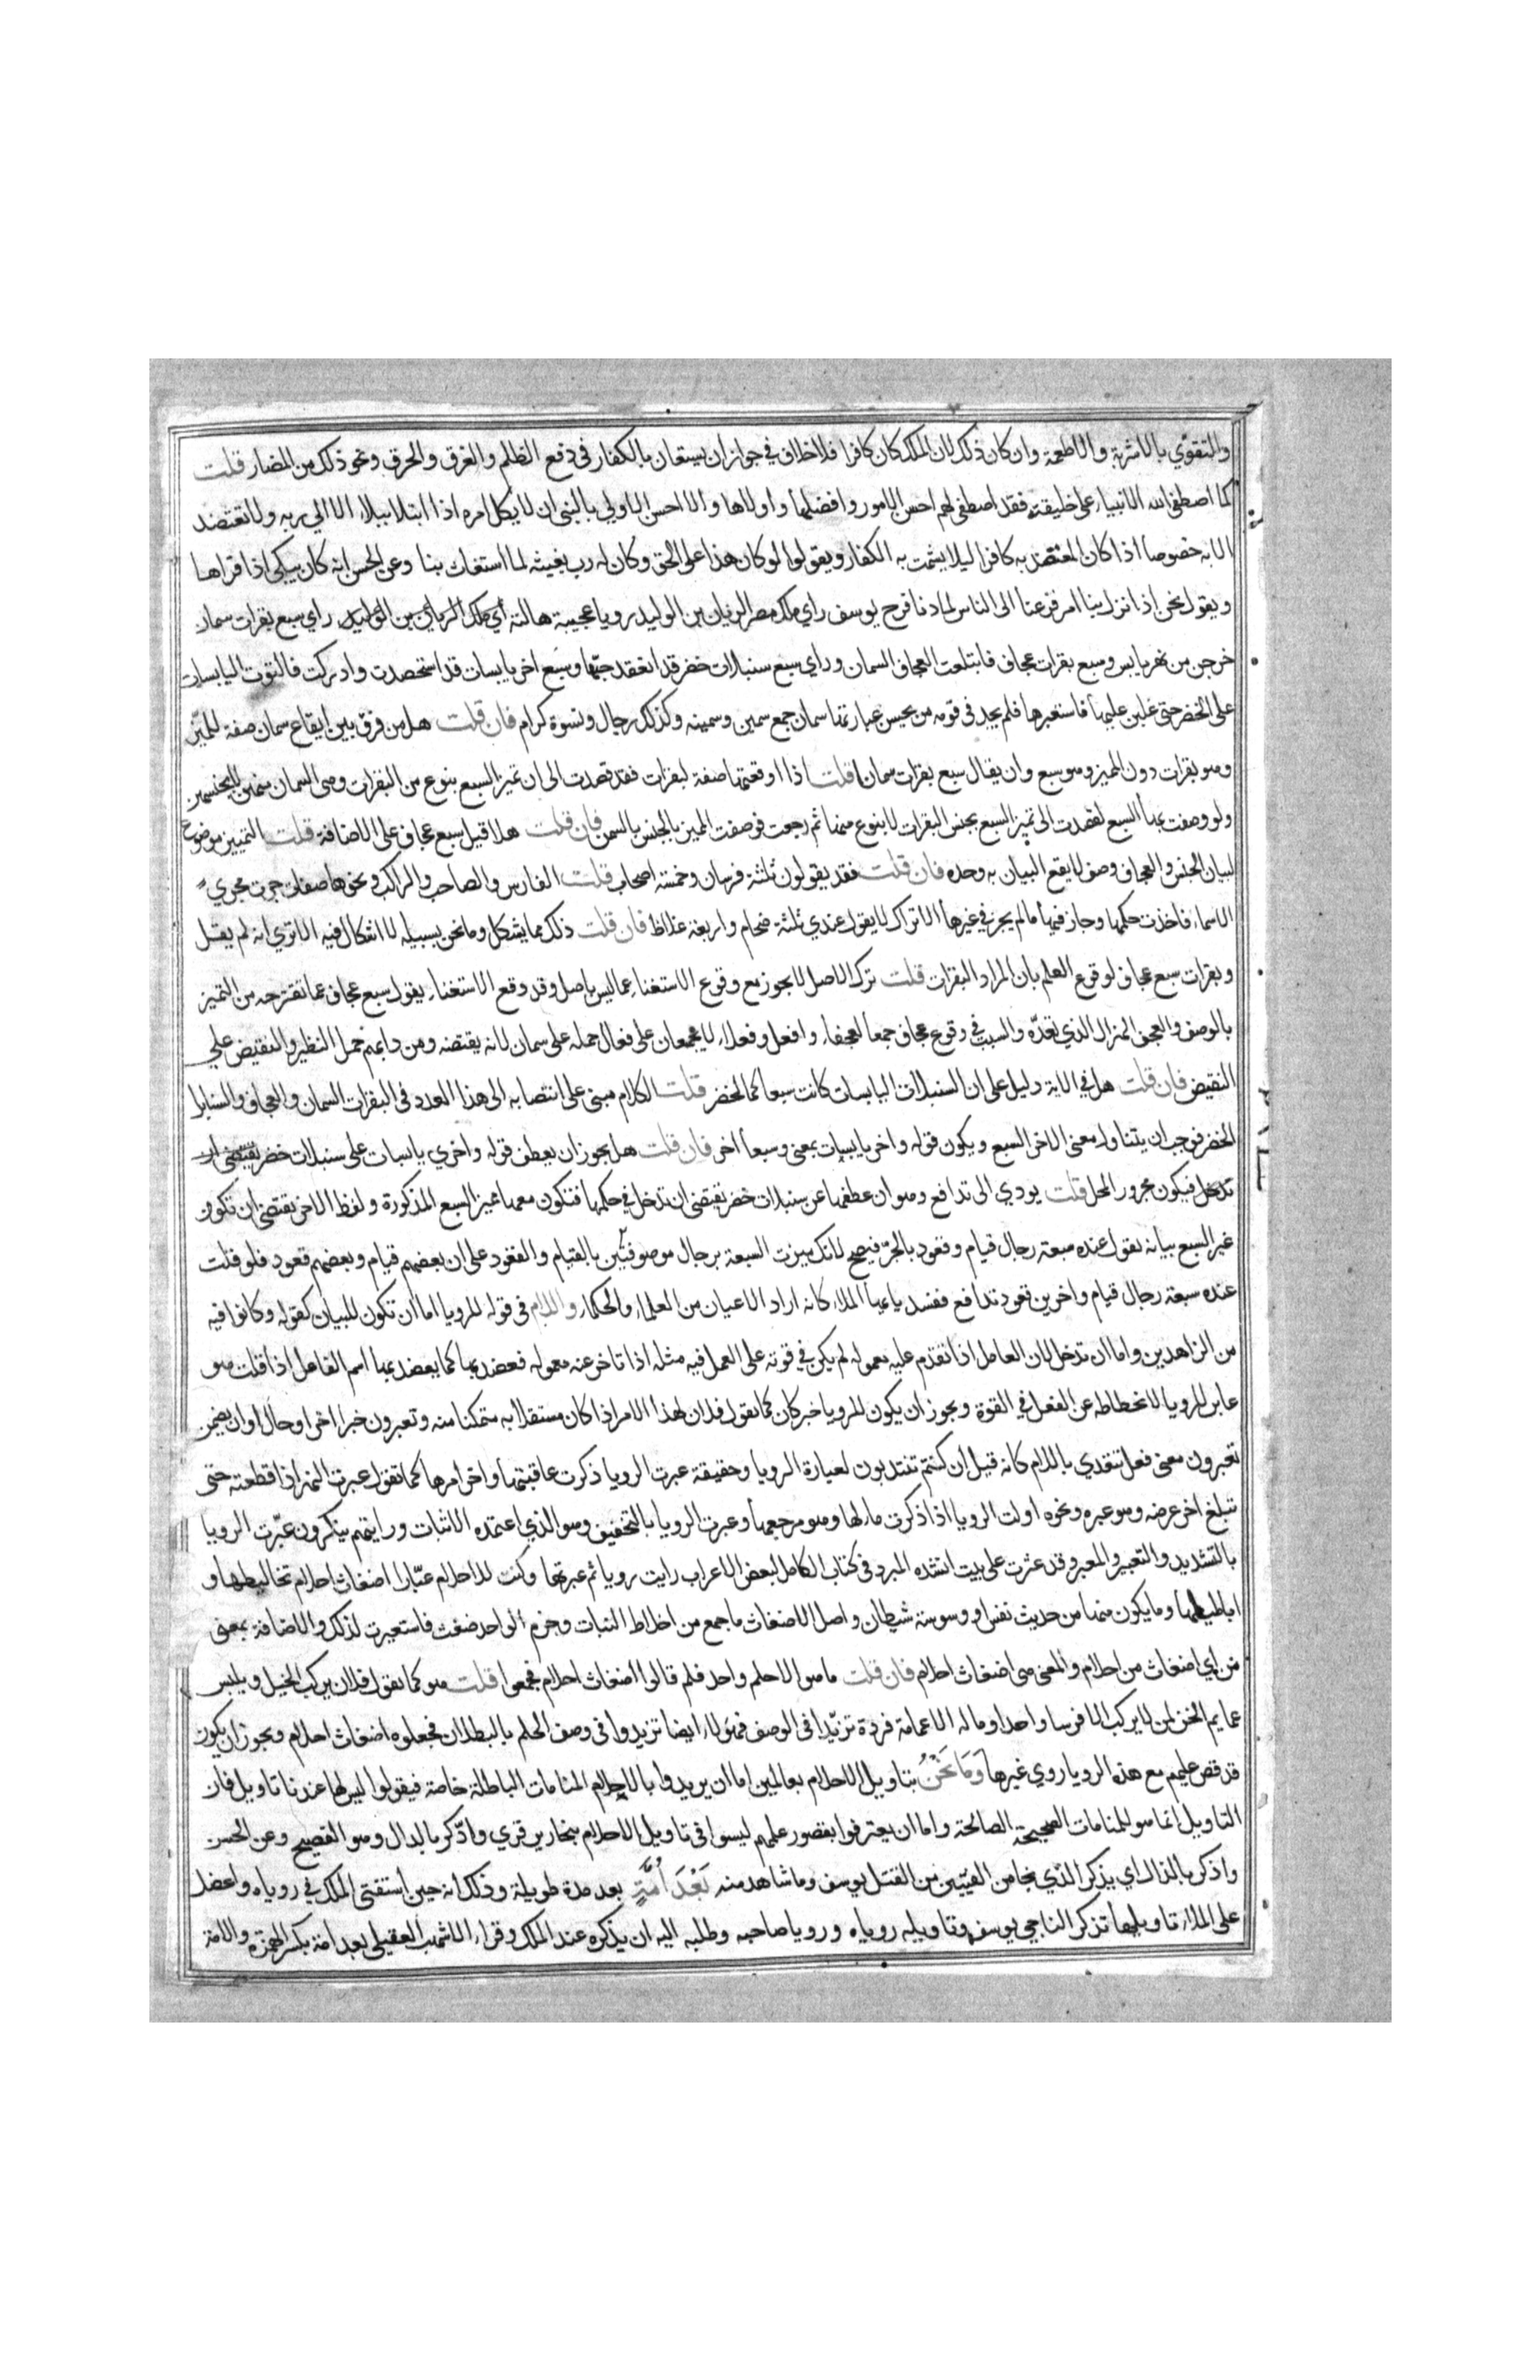 والتقوّي بالاشربة والاطعمة وان كان ذلك لان الملك كان كافرا فلا خلاف في جواز ان يستعان بالكفار في دفع الظلم والغرق والحرق ونحو ذلك من المضار قلت
كما اصطفى الله الانبياء على خليقته فقد اصطفى لهم احسن الامور وافضلها واولاها والاحسن الاولي بالنبى ان لا يكل امره اذا ابتلا ببلاء الا الي ربه ولا تعتضد
الا به خصوصا اذا كان المعتضد به كافرا ليلا يشمت به الكفار ويقولوا لو كان هذا على الحق وكان له رب يغيثه لما استغاث بنا وعن الحسن انه كان يبكى اذا قراها
ويقول نحن اذا نزل بنا امر فزعنا الى الناس لما دنا فرج يوسف راي ملك مصر الريان بن الوليد رويا عجيبة هالته أي ملك الريان بن الوليد راي سبع بقرات سمان
خرجن من نهر يابس وسبع بقرات عجاف فابتلعت العجاف السمان وراي سبع سنبلات خضر قد انعقد حبّها وسبع اخر يابسات قد استحصدت وادركت فالتوت اليابسات
على الخضر حتى غلبن عليها فاستعبرها فلم يجد فى قومه من يحسن عبارتها سمان جمع سمين وسمينه وكذلك رجال ونسوة كرام فان قلت هل من فرق بين ايقاع سمان صفة للمميّز
وهو بقرات دون المميز وهو سبع وان يقال سبع بقرات سمانا قلت اذا اوقعتها صفة لبقرات فقد قصدت الى ان تميز السبع بنوع من البقرات وهى السمان منهن لا بجنسهن
ولو وصفت بها السبع لقصدت الى تميز السبع بجنس البقرات لا بنوع منها ثم رجعت فوصفت المميز بالجنس بالسمن فان قلت هلا قيل سبع عجاف على الاضافة قلت التمييز موضوع
لبيان الجنس والعجاف وصف لا يقع البيان به وحده فان قلت فقد يقولون ثلثة فرسان وخمسة اصحاب قلت الفارس والصاحب والراكب ونحوها صفات جرت مجري
الاسماء فاخذت حكمها وجاز فيها ما لم يجز في غيرها الا تراك لا يقول عندي ثلثة ضخام واربعة غلاظ فان قلت ذلك مما يشكل وما نحن بسبيله لا اشكال فيه الا تري انه لم يقل
وبقرات سبع عجاف لوقوع العلم بان المراد البقرات قلت ترك الاصل لا يجوز مع وقوع الاستغناء عما ليس باصل وقد وقع الاستغناء بقول سبع عجاف عما تقترحه من التميز
بالوصف والعجف الهزال الذي نعدّه والسبب في وقوع عجاف جمعا لعجفاء وافعل وفعلاء لا يجمعان على فعال حمله على سمان لانه يقتضه ومن دابهم حمل النظير والنقيض علي
النقيض فان قلت هل في الاية دليل على ان السنبلات اليابسات كانت سبعا كالخضر قلت الكلام مبنى على انتصابه الى هذا العدد فى البقرات السمان والعجاف والسنابل
الخضر فوجب ان يتناول معنى الاخر السبع ويكون قوله واخر يابسات بمعنى وسبعا اخر فان قلت هل يجوز ان يعطف قوله واخري يابسات على سنبلات خضر يقتضى ان
تدخل فيكون مجرور المحل قلت يودي الى تدافع وهو ان عطفها عن سنبلات خضر يقتضى ان تدخل في حكمها فتكون معها مميز السبع المذكورة ولفظ الاخر تقتضى ان تكون
غير السبع بيانه يقول عنده سبعة رجال قيام وقعود بالجرّ فيصح لانك ميزت السبعة برجال موصوفيّن بالقيام والقعود على ان بعضهم قيام وبعضهم قعود فلو قلت
عنده سبعة رجال قيام واخرين قعود تدافع ففسد ياءيها الملاء كانه اراد الاعيان من العلماء والحكماء واللام فى قوله للرويا اما ان تكون للبيان كقوله وكانوا فيه
من الزاهدين واما ان تدخل لان العامل اذا تقدم عليه معموله لم يكن في قوته على العمل فيه مثله اذا تاخر عنه معموله فعضد بها كما يعضد بها اسم الفاعل اذا قلت هو
عابر للرويا لانحطاطه عن الفعل في القوة ويجوز ان يكون للرويا خبر كان كما تقول فلان لهذا الامر اذا كان مستقلا به متمكنا منه وتعبرون خبرا اخر او حال او ان يضمن
تعبرون معنى فعل تتعدي باللام كانه قيل ان كنتم تنتدبون لعبارة الرويا وحقيقة عبرت الرويا ذكرت عاقبتها واخر امرها كما تقول عبرت النهر اذا قطعته حتى
تبلغ اخر عرضه وهو عبره ونحوه اولت الرويا اذا ذكرت مالها وهو مرجعها وعبرت الرويا بالتخفيف وهو الذي اعتمده الاثبات ورايتهم ينكرون عبّرت الرويا
بالتشديد والتعبير والمعبر وقد عثرت على بيت انشده المبرد فى كتاب الكامل لبعض الاعراب رايت رويا ثم عبرتها وكنت للاحلام عبّارا اضغاث احلام تخاليطها و
اباطيلها وما يكون منها من حديث نفس او وسوسة شيطان واصل الاضغاث ما جمع من اخلاط النبات وحزم الواحد ضغث فاستعيرت لذلك والاضافة بمعنى
من اي اضغاث من احلام والمعنى هى اضغاث احلام فان قلت ما هو الا حلم واحد فلم قالوا اضغاث احلام فجمعوا قلت هو كما تقول فلان يركب الخيل ويلبس
عمايم الخز لمن لا يركب الا فرسا واحدا وما له الا عمامة فردة تزيّدا فى الوصف فهولاء ايضا تزيدوا فى وصف الحلم بالبطلان فجعلوه اضغاث احلام ويجوز ان يكون
قد قص عليهم مع هذه الرويا روي غيرها وَمَا نَحْنُ بتاويل الاحلام بعالمين اما ان يريدوا بالاحلام المنامات الباطلة خاصة فيقولوا ليس لها عندنا تاويل فان
التاويل انما هو للمنامات الصحيحة الصالحة واما ان يعترفوا بقصور علمهم ليسوا فى تاويل الاحلام بنحارير قري وادّكر بالدال وهو الفصيح وعن الحسن
واذكر بالذال اي يذكر الذي نجا من الفتيين من القتل يوسف وما شاهد منه بَعْدَ أُمَّةٍ بعد مدة طويلة وذلك انه حين استفتى الملك في روياه واعضل
على الملاء تاويلها تذكر الناجي يوسف وتاويله روياه ورويا صاحبه وطلبه اليه ان يذكره عند الملك وقراء الاشهب العقيلى بعد امة بكسر الهمزة والامة